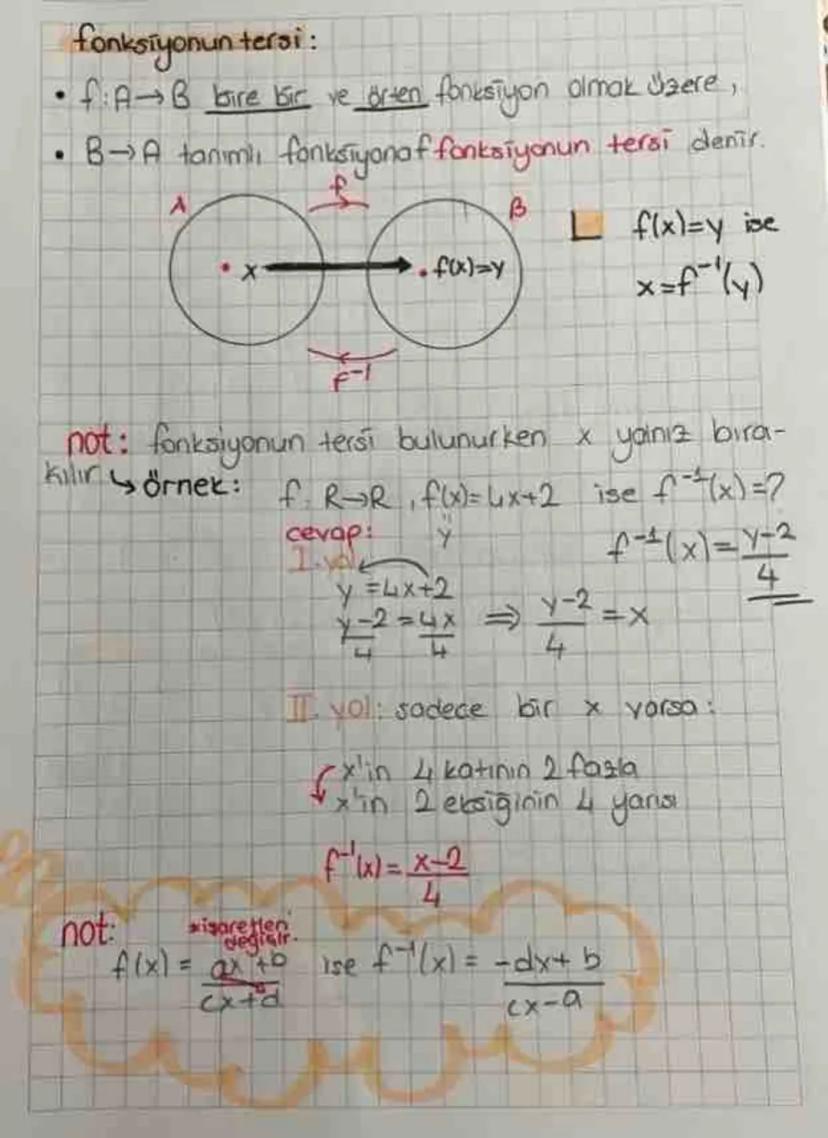 fonksiyonun tersi:
• f:A→B bire bir ve örten fonksiyon olmak üzere,
• B→A tanımlı fonksiyona f fonksiyonun tersi denir.
f
A
B
• x
• f(x)=y
f⁻¹
f(x)=y ise
x=f⁻¹(y)
not: fonksiyonun tersi bulunurken x yalnız bıra-
kılır ↳ örnek: f: R→R, f(x)=4x+2 ise f⁻¹(x)=?
cevap: y
f⁻¹(x)=(y-2)/4
I. yol
y=4x+2
(y-2)/4=4x/4 ⇒ (y-2)/4=x
II. yol: sadece bir x varsa:
x'in 4 katının 2 fazla
x'in 2 eksiğinin 4 yarısı
f⁻¹(x)=(x-2)/4
not: *işaretleri
değişir.
f(x)=(ax+b)/(cx+d) ise f⁻¹(x)=(-dx+b)/(cx-a)